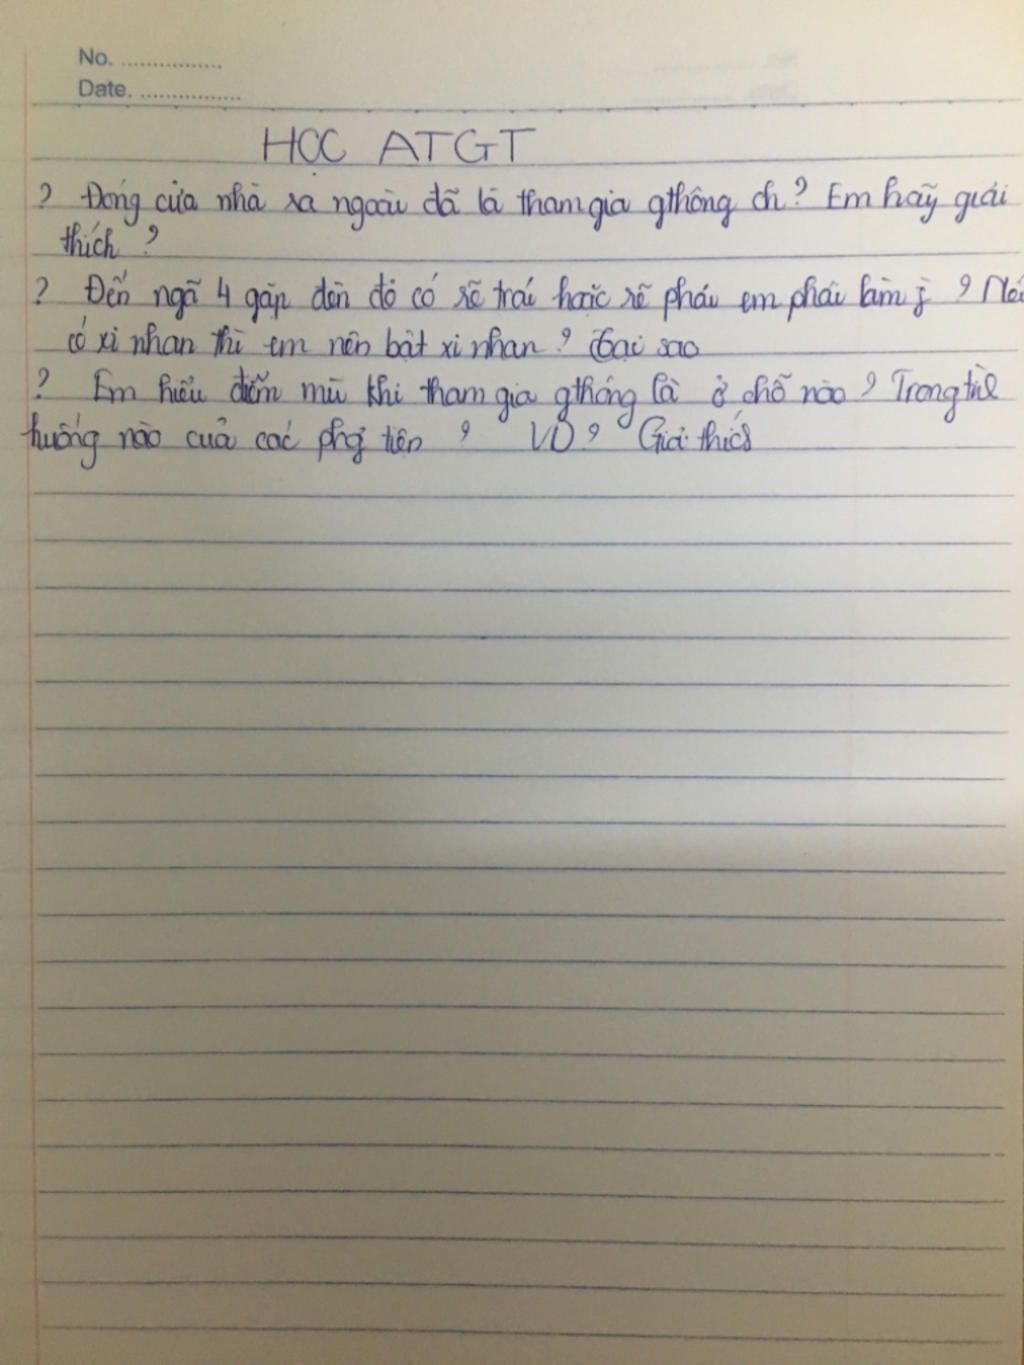 No. ................
Date. ................
HỌC ATGT
? Đóng cửa nhà ra ngoài đã là tham gia gthông ch? Em hãy giải
thích ?
? Đến ngã 4 gặp đèn đỏ có rẽ trái hoặc rẽ phải em phải làm j ? Nếu
có xi nhan thì em nên bật xi nhan? Tại sao
? Em hiểu điểm mù khi tham gia gthông là ở chỗ nào ? Trong
huống nào của các phg tiện ? VD? Giải thích